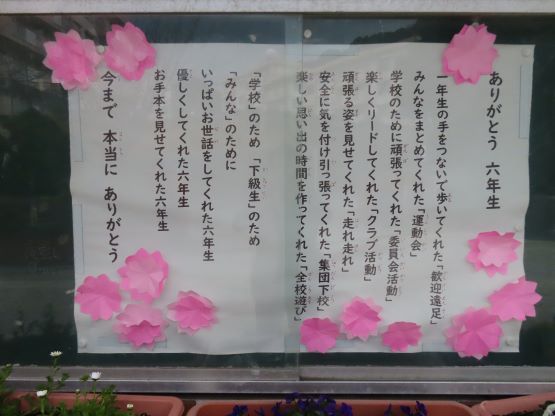 ありがとう 六年生
一年生の手をつないで歩いてくれた「歓迎遠足」
みんなをまとめてくれた「運動会」
学校のために頑張ってくれた「委員会活動」
楽しくリードしてくれた「クラブ活動」
頑張る姿を見せてくれた「走れ走れ」
安全に気を付け引っ張ってくれた「集団下校」
楽しい思い出の時間を作ってくれた「全校遊び」
「学校」のため 「下級生」のため
「みんな」のために
いっぱいお世話をしてくれた六年生
優しくしてくれた六年生
お手本を見せてくれた六年生
今まで 本当に ありがとう